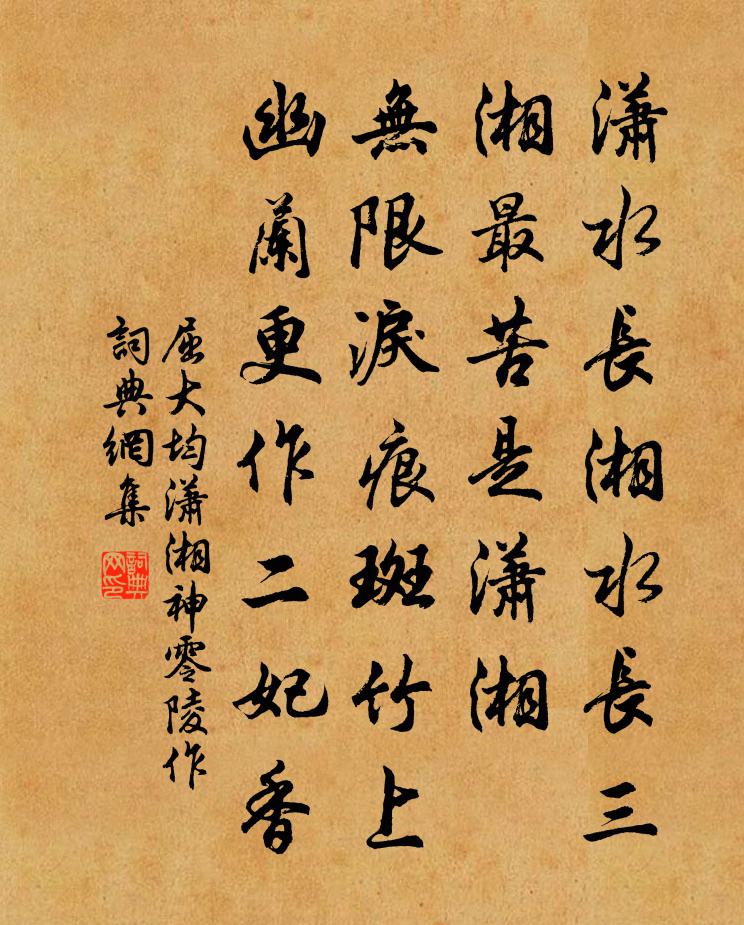 瀟水長湘水長三
湘最苦是瀟湘
無限淚痕斑竹上
幽蘭更作二妃香
屈大均瀟湘神零陵作
詞典網集
詞典网印